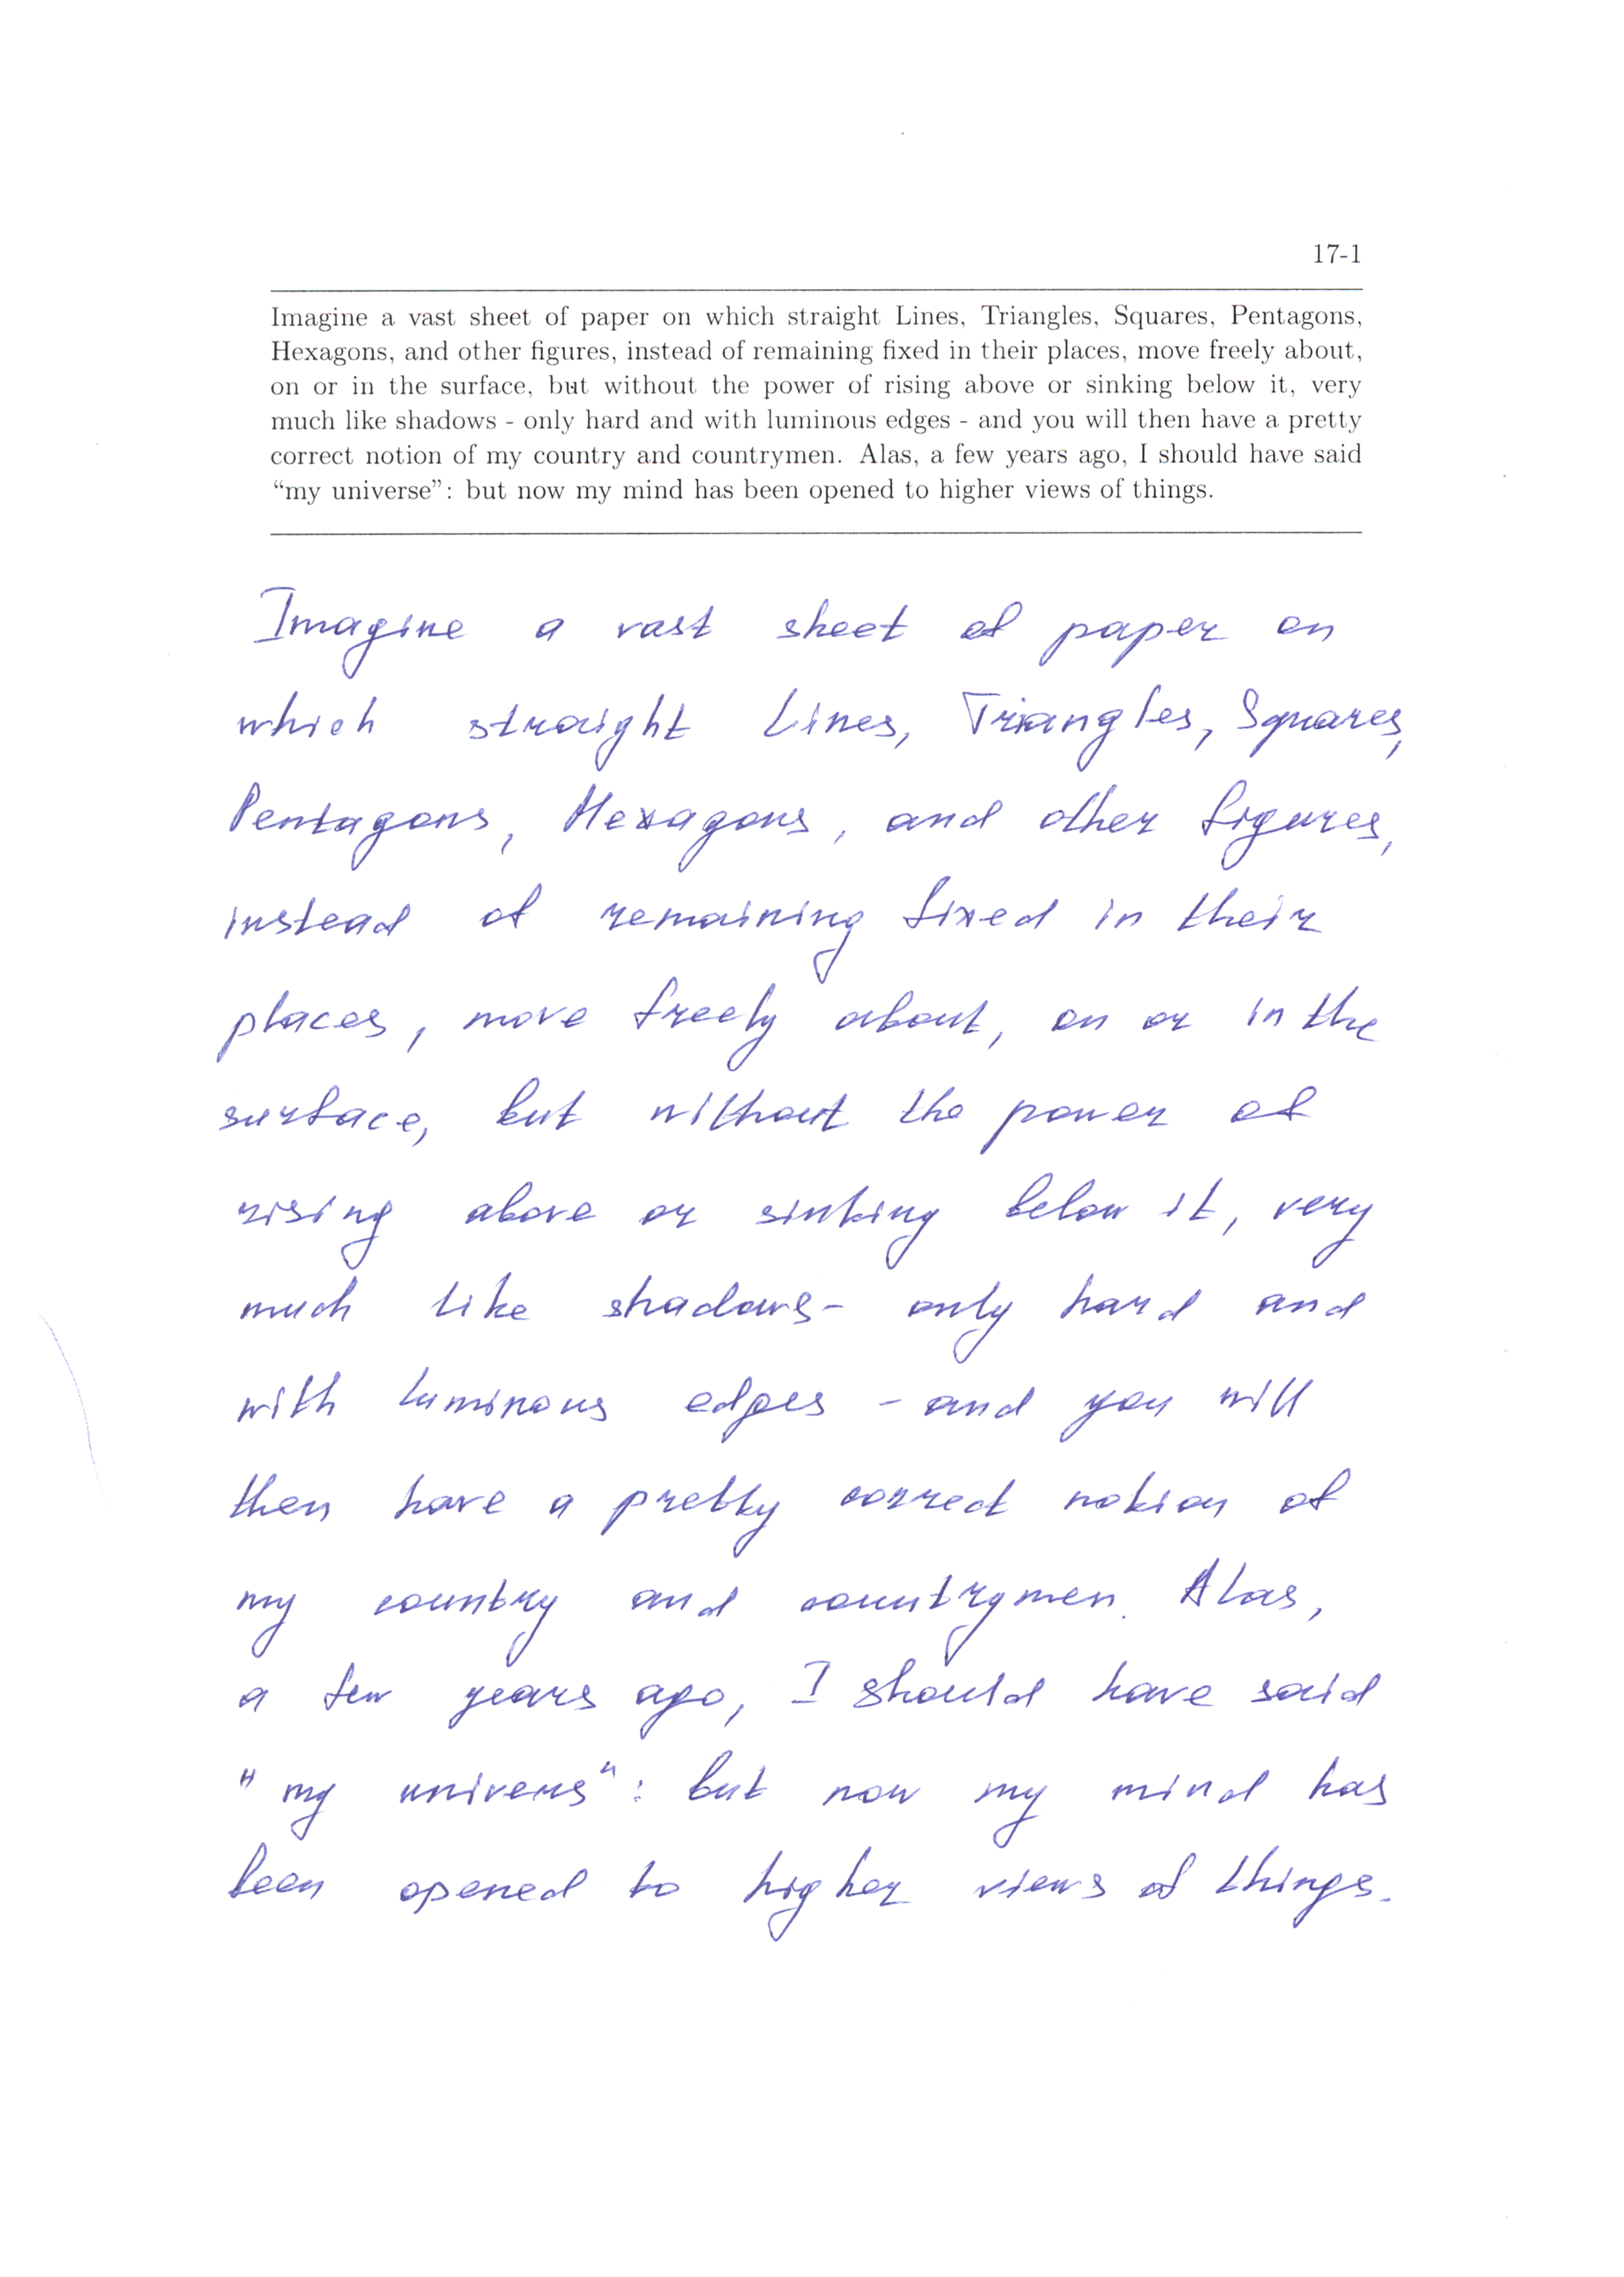 17-1
Imagine a vast sheet of paper on which straight Lines, Triangles, Squares, Pentagons,
Hexagons, and other figures, instead of remaining fixed in their places, move freely about,
on or in the surface, but without the power of rising above or sinking below it, very
much like shadows - only hard and with luminous edges - and you will then have a pretty
correct notion of my country and countrymen. Alas, a few years ago, I should have said
“my universe”: but now my mind has been opened to higher views of things.
Imagine a vast sheet of paper on
which straight Lines, Triangles, Squares,
Pentagons, Hexagons, and other figures,
instead of remaining fixed in their
places, move freely about, on or in the
surface, but without the power of
rising above or sinking below it, very
much like shadows- only hard and
with luminous edges - and you will
then have a pretty correct notion of
my country and countrymen. Alas,
a few years ago, I should have said
"my univers": but now my mind has
been opened to higher views of things.